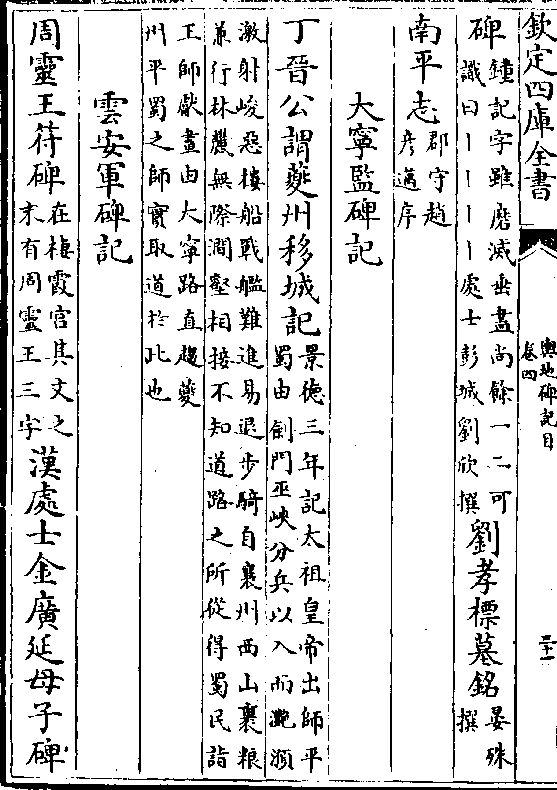 欽定四庫全書
輿地碑記目
卷四
三十一
碑鍾記字雖磨滅垂盡尚餘一二可
識曰丨丨丨丨處士彭城劉欣撰
劉孝標墓銘晏殊
撰
南平志郡守趙
彦邁序
大寧監碑記
丁晉公謂夔州移城記景德三年記太祖皇帝出師平
蜀由劍門巫峽分兵以入而灔澦
激射峻惡樓船戰艦難進易退步騎自襄州西山裹粮
兼行林麓無際澗壑相接不知道路之所從得蜀民詣
王師獻畫由大寧路直趨夔
州平蜀之師實取道於此也
雲安軍碑記
周靈王符碑在棲霞宫其文之
末有周靈王三字
漢處士金廣延母子碑